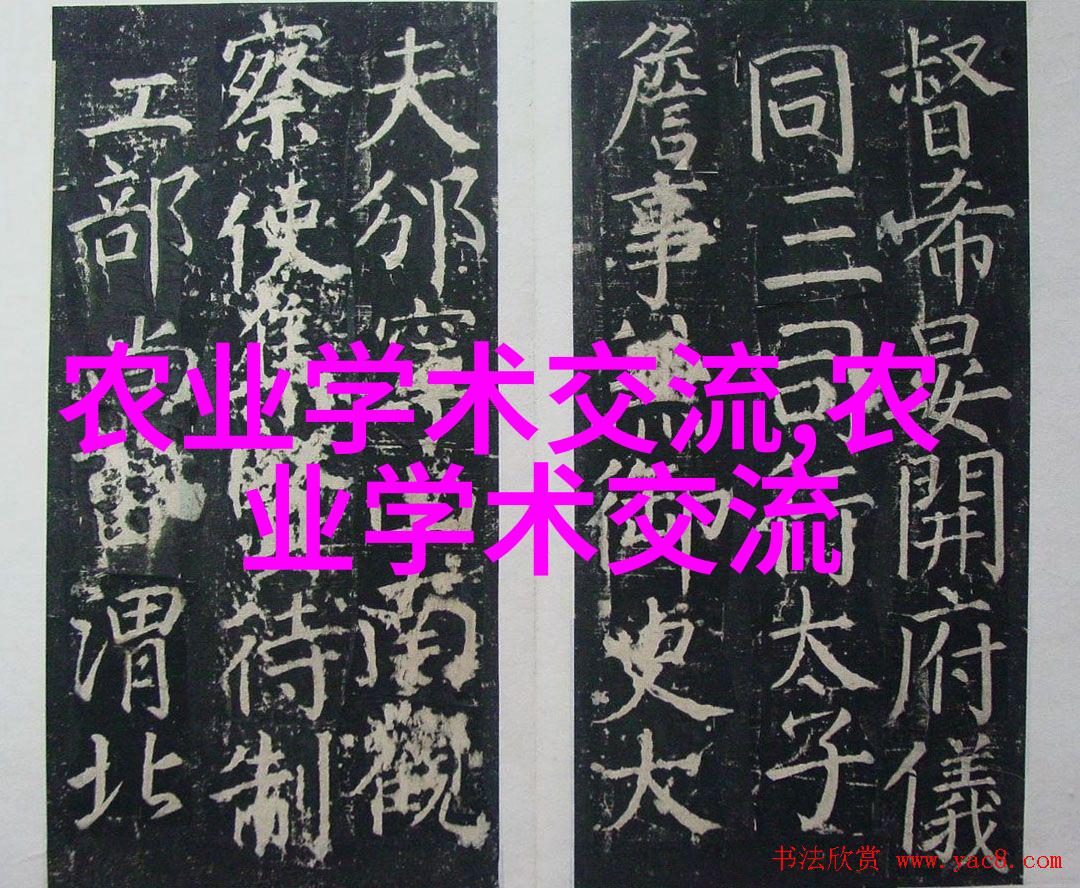 督希晏開府儀
同三司行太子
詹事兼御史大
夫邠寧
南觀
察使
待制
工部尚
渭北
农业学术交流,农
业学术交流
书法欣赏 www.yac8.com